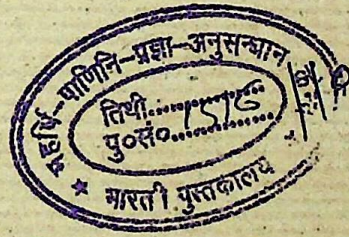 महर्षि-पाणिनि-प्रज्ञा-अनुसन्धान
तिथी..................
पु०सं०..................
★ भारती पुस्तकालय